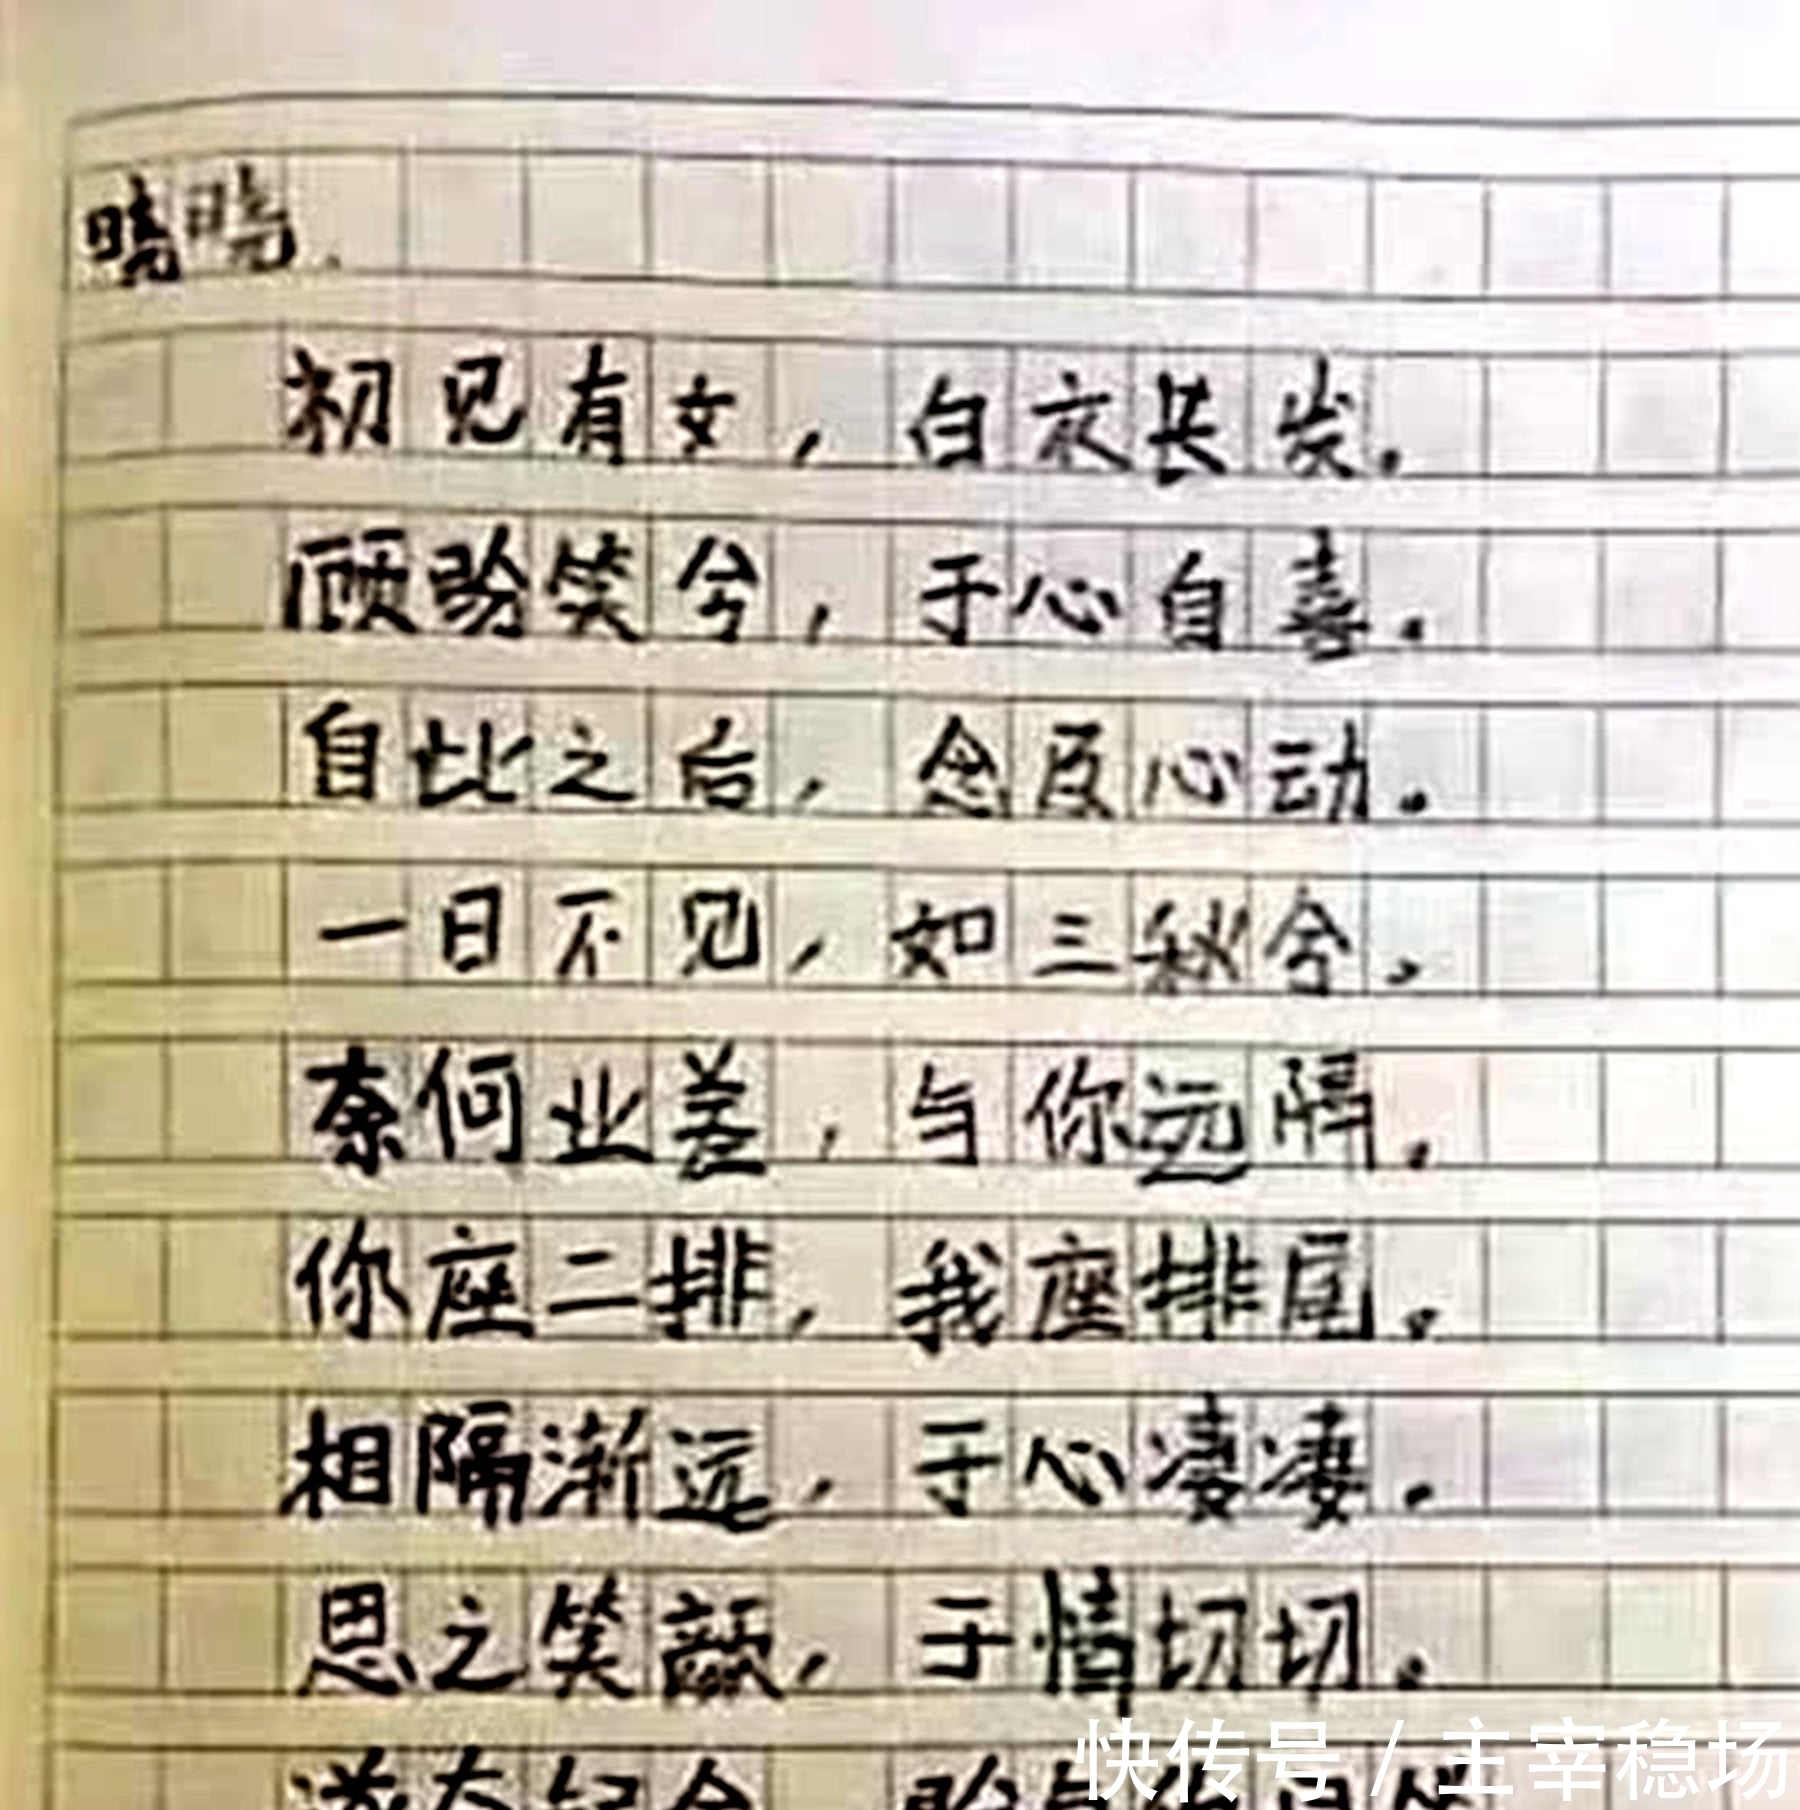 晓晓.
初见有女，白衣长发.
顾盼笑兮，于心自喜.
自此之后，念及心动.
一日不见，如三秋兮.
奈何业差，与你远隔.
你座二排，我座排尾.
相隔渐远，于心凄凄.
思之笑颜，于情切切.
快传号 / 主宰稳场